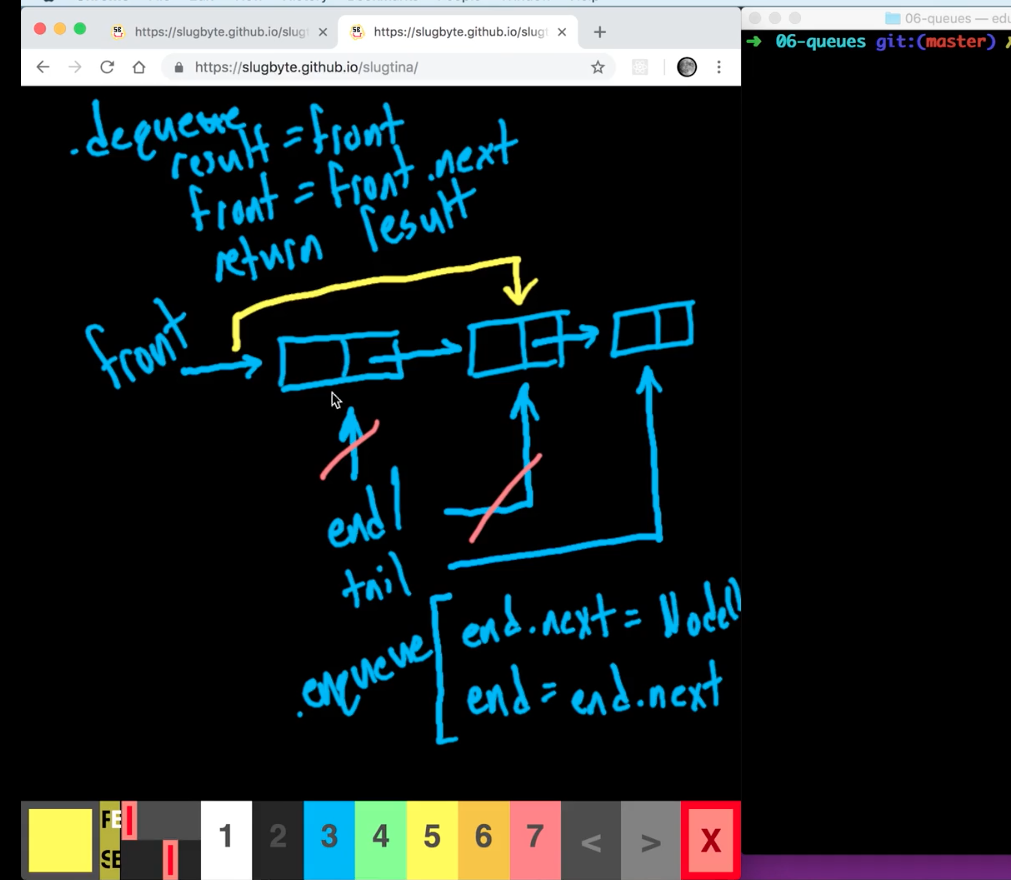 https://slugbyte.github.io/slugt
https://slugbyte.github.io/slugt
https://slugbyte.github.io/slugtina/
06-queues — edu
06-queues git:(master)
.dequeue
result = front
front = front.next
return result
front
end/
tail
.enqueue
end.next = Node()
end = end.next
1 2 3 4 5 6 7 < > X